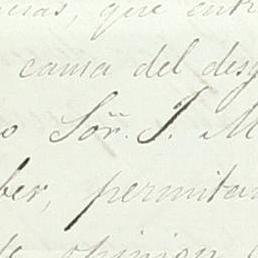 que entr
causa del des
Sor. J. M
ber, permitan
opinion